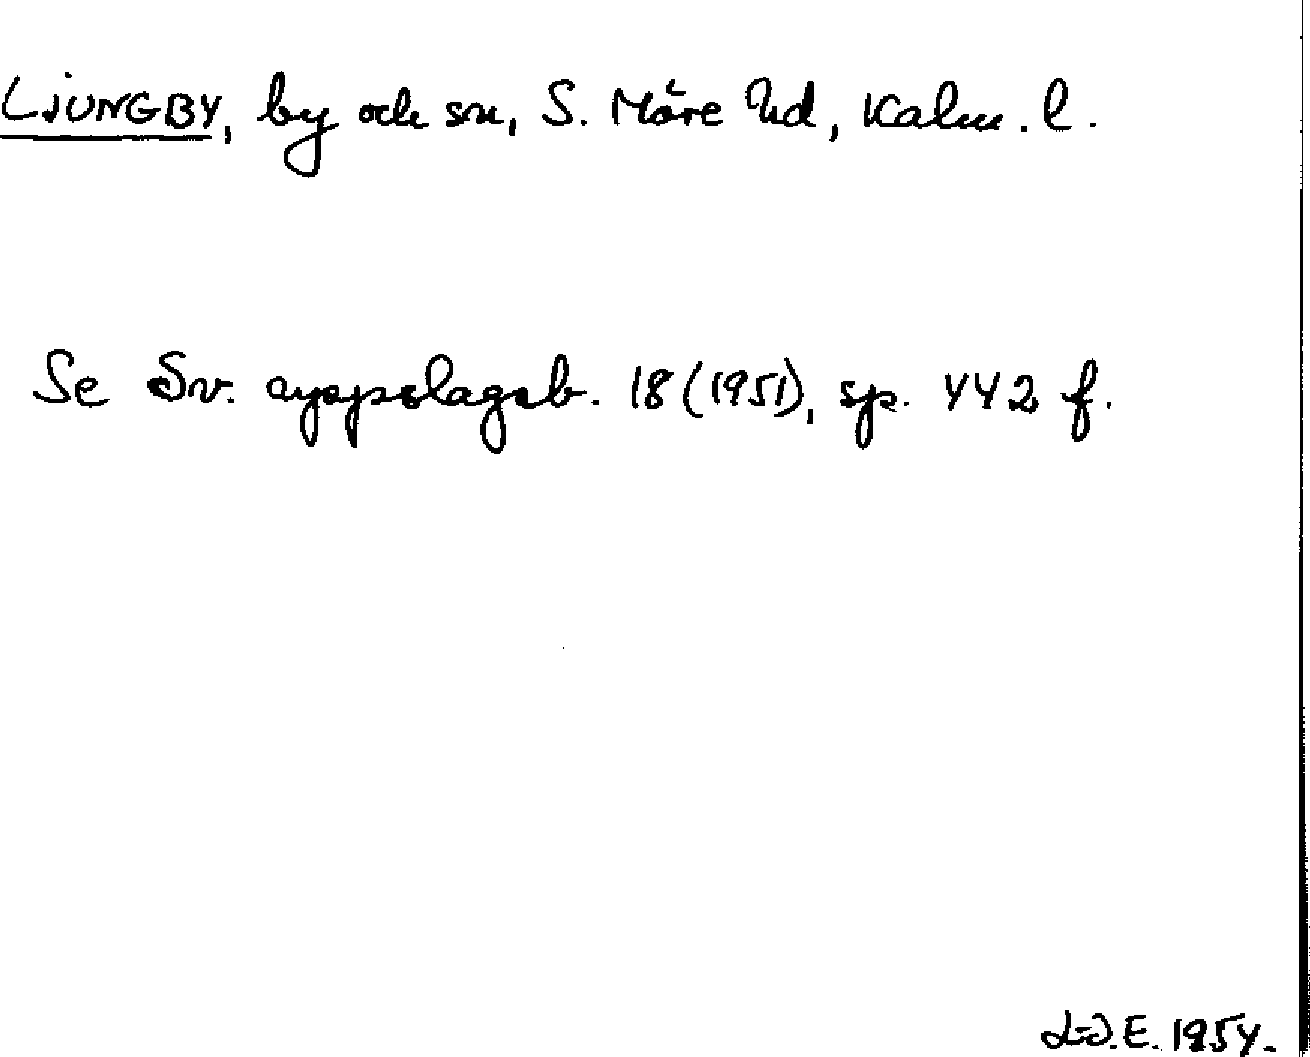 LJUNGBY, by och sn, S. Möre hd, Kalm. l.
Se Sv. uppslagsb. 18 (1951), sp. 442 f.
E. 1954.